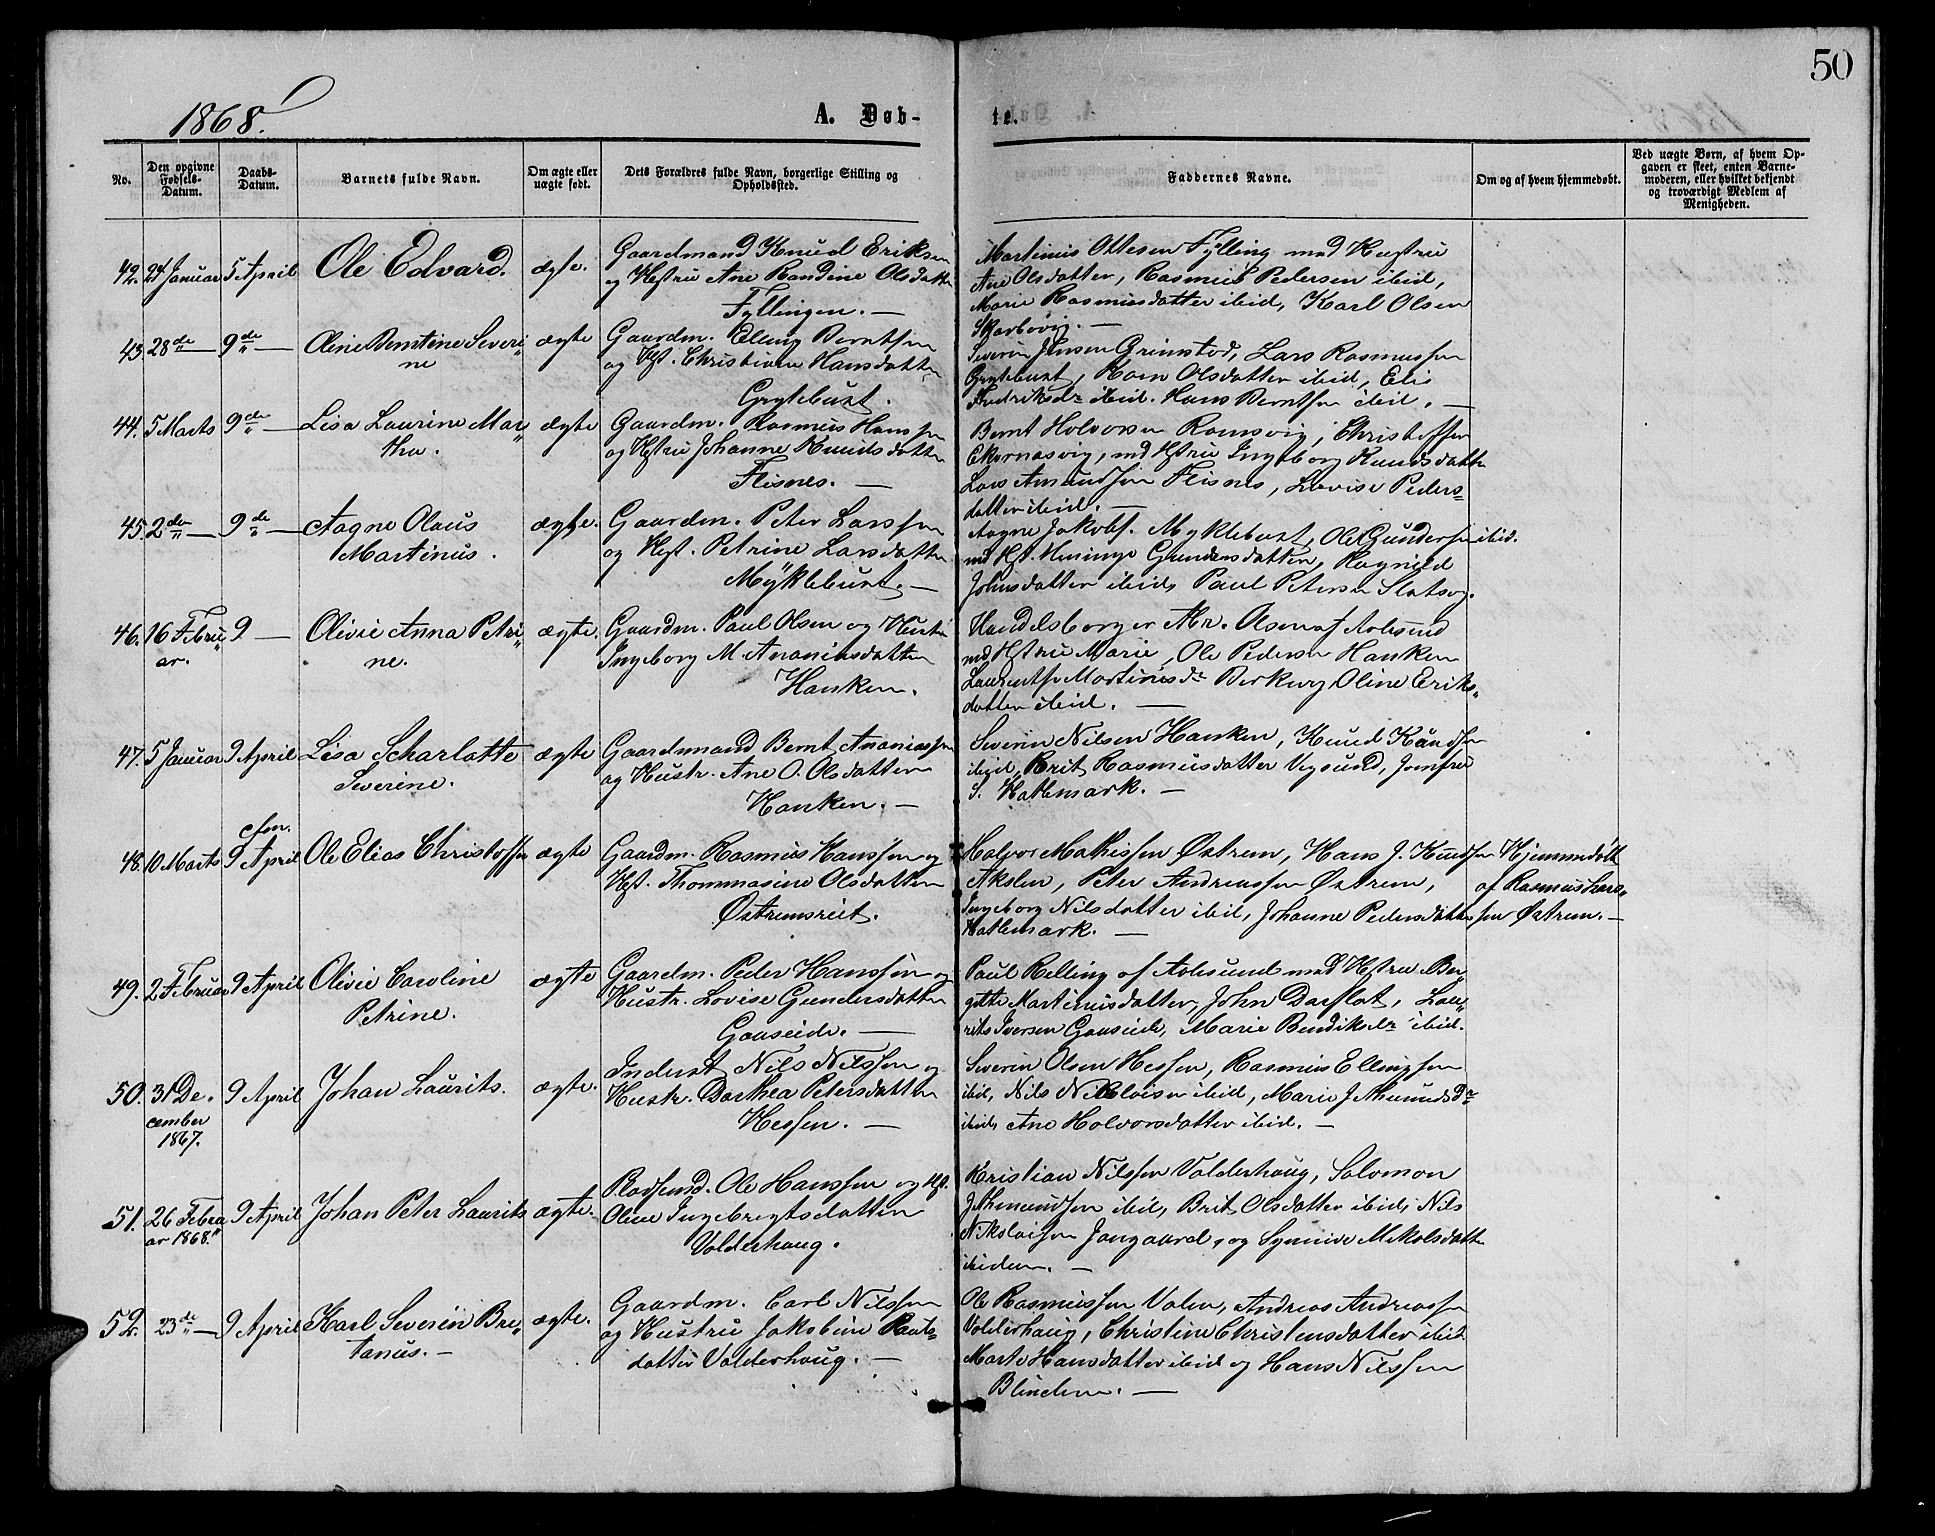 50
1868.
A. Døb-
te.
No.
Den opgivne Fødsels-Datum.
Daabs-Datum.
Barnets fulde Navn.
Om ægte eller uægte født.
Dets Forældres fulde Navn, borgerlige Stilling og Opholdssted.
Faddernes Navne.
Om og af hvem hjemmedøbt.
Ved uægte Børn, af hvem Op-
gaven er skeet, enten Barne-
moderen, eller hvilket bekjendt
og troværdigt Medlem af
Menigheden.
42. 24 Januar 5 April Ole Edvard. ægte.
Gaardmand Knud Eriksen
og Hustru Ane Randine Olsdatter
Fyllingen. —
Martinus Ottesen Fylling med Hustru
Ane Olsdatter, Rasmus Pedersen ibid,
Marie Rasmusdatter ibid, Karl Olsen
Skarbøvig. —
43. 28de — 9de — Oline Berntine Severi„
ne
ægte
Gaardm. Elling Berntsen
og Hst. Christiane Hansdatter
Grytebust.
Severin Jensen Grimstad, Lars Rasmussen
Grytebust, Karn Olsdatter ibid, Elis
Hans Berntsen ibid. —
44. 5 Marts 9de — Lisa Laurine Mar„
tha.
ægte
Gaardm. Rasmus Hanssen
og Hstru Johanne Knudsdatter
Flisnes. —
Bernt Halvorsen Ramsvig, Christoffer
med Hstru Ingeborg Knudsdatter
Lars Amundsen Flisnes, Lovise Peders-
datter ibid. —
45. 2den — 9de — Aagne Olaus
Martinus.
ægte.
Gaardm. Peter Larssen
og Hst. Petrine Larsdatter
Myklebust. —
Aagne Jakobs. Myklebust, Ole Gundersen ibid.
med Hst. Gundersdatter, Ragnild
Johnsdatter ibid, Paul Petersen
46. 16 Febru„
ar.
9 — Olivie Anna Petri„
ne.
ægte.
Gaardm. Paul Olsen og Hustru
Ingeborg M. Ananiasdatter
Hanken.
Handelsborger Olsen af Aalesund
med Hstru Marie, Ole Pedersen Hanken
Oline Eriks„
datter ibid. —
47. 5 Januar 9 April Lisa Scharlotte
Severine.
ægte
Gaardmand Bernt Ananiassen
og Hustr. Ane O. Olsdatter
Hanken. —
Severin Nilsen Hanken, Knud Knudsen
ibid, Brit Rasmusdatter Vegsund, Jomfru
S. Hatlemark. —
48. 10 Marts 9 April Ole Elias Christoffer ægte
Gaardm. Rasmus Hanssen og
Hst. Thommasine Olsdatter
Østremsreit.
Halvor Mathissen Østrem, Hans J. Knudsen
Akslen, Peter Andreassen Østrem,
Ingeborg Nilsdatter ibid, Johanne Pedersdatter
Hatlemark. —
Hjemmedøbt
af Rasmus Lars„
sen Østrem. —
49. 2 Februar 9 April Olivie Caroline
Petrine.
ægte
Gaardm. Peder Hanssen og
Hustr. Lovise Gundersdatter
Gaaseide. —
Paul Relling af Aalesund med Hstru Ber„
gitte Martinusdatter, John Darflot, Lau„
rits Iversen Gaaseide, Marie Bendiksdr ibid.
50. 31 De„
cember
1867.
9 April Johan Laurits. ægte.
Inderst Nils Nilssen og
Hustr. Dorthea Petersdatter
Hessen. —
Severin Olsen Hessen, Rasmus Ellingsen
ibid, Nils Nikolaisen ibid, Marie J. Amundsdr
ibid, Ane Halvorsdatter ibid. —
51. 26 Febru„
ar 1868.
9 April Johan Peter Laurits ægte.
Pladsmd. Ole Hanssen og Hst.
Oline Ingebrigtsdatter
Valderhaug.
Kristian Nilssen Valderhaug, Salomon
J. Amundsen ibid, Brit Olsdatter ibid, Nils
Nikolaisen Jangaard, og Synnive Nikolsdatter
ibidem. —
52. 23de — 9 April Karl Severin Bre„
tanus. —
ægte.
Gaardm. Carl Nilssen
og Hustru Jakobine
datter Valderhaug. —
Ole Rasmussen Valen, Andreas Andreassen
Valderhaug, Christine Christensdatter ibid
Marte Hansdatter ibid og Hans Nilssen
Blindem. —